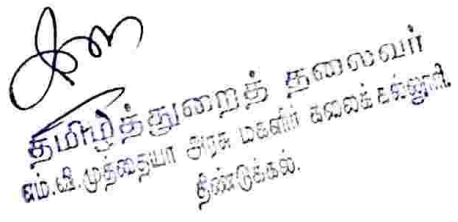 தமிழ்த்துறைத் தலைவர்
எம்.வி.முத்தையா அரசு மகளிர் கலைக் கல்லூரி,
திண்டுக்கல்.